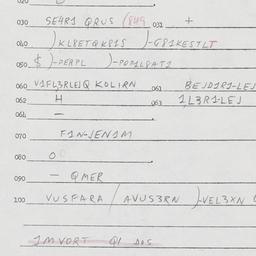 020
030 SE4R1 QRUS (849 031 +
040 )KLBETQK81S )-G81KESTLT
050 $)-DERPL )-POP1LPAT1
060 V1FL3RLEJQ KOL1RN 061 BEJD1R1-LEJ
062 H 063 1L3R1-LEJ
064 -
070 F1N-JEN1M
080 O
090 - QMER
100 VUSFARA / AVUS3RN )-VEL3XN
1MVORT Q1 DOS